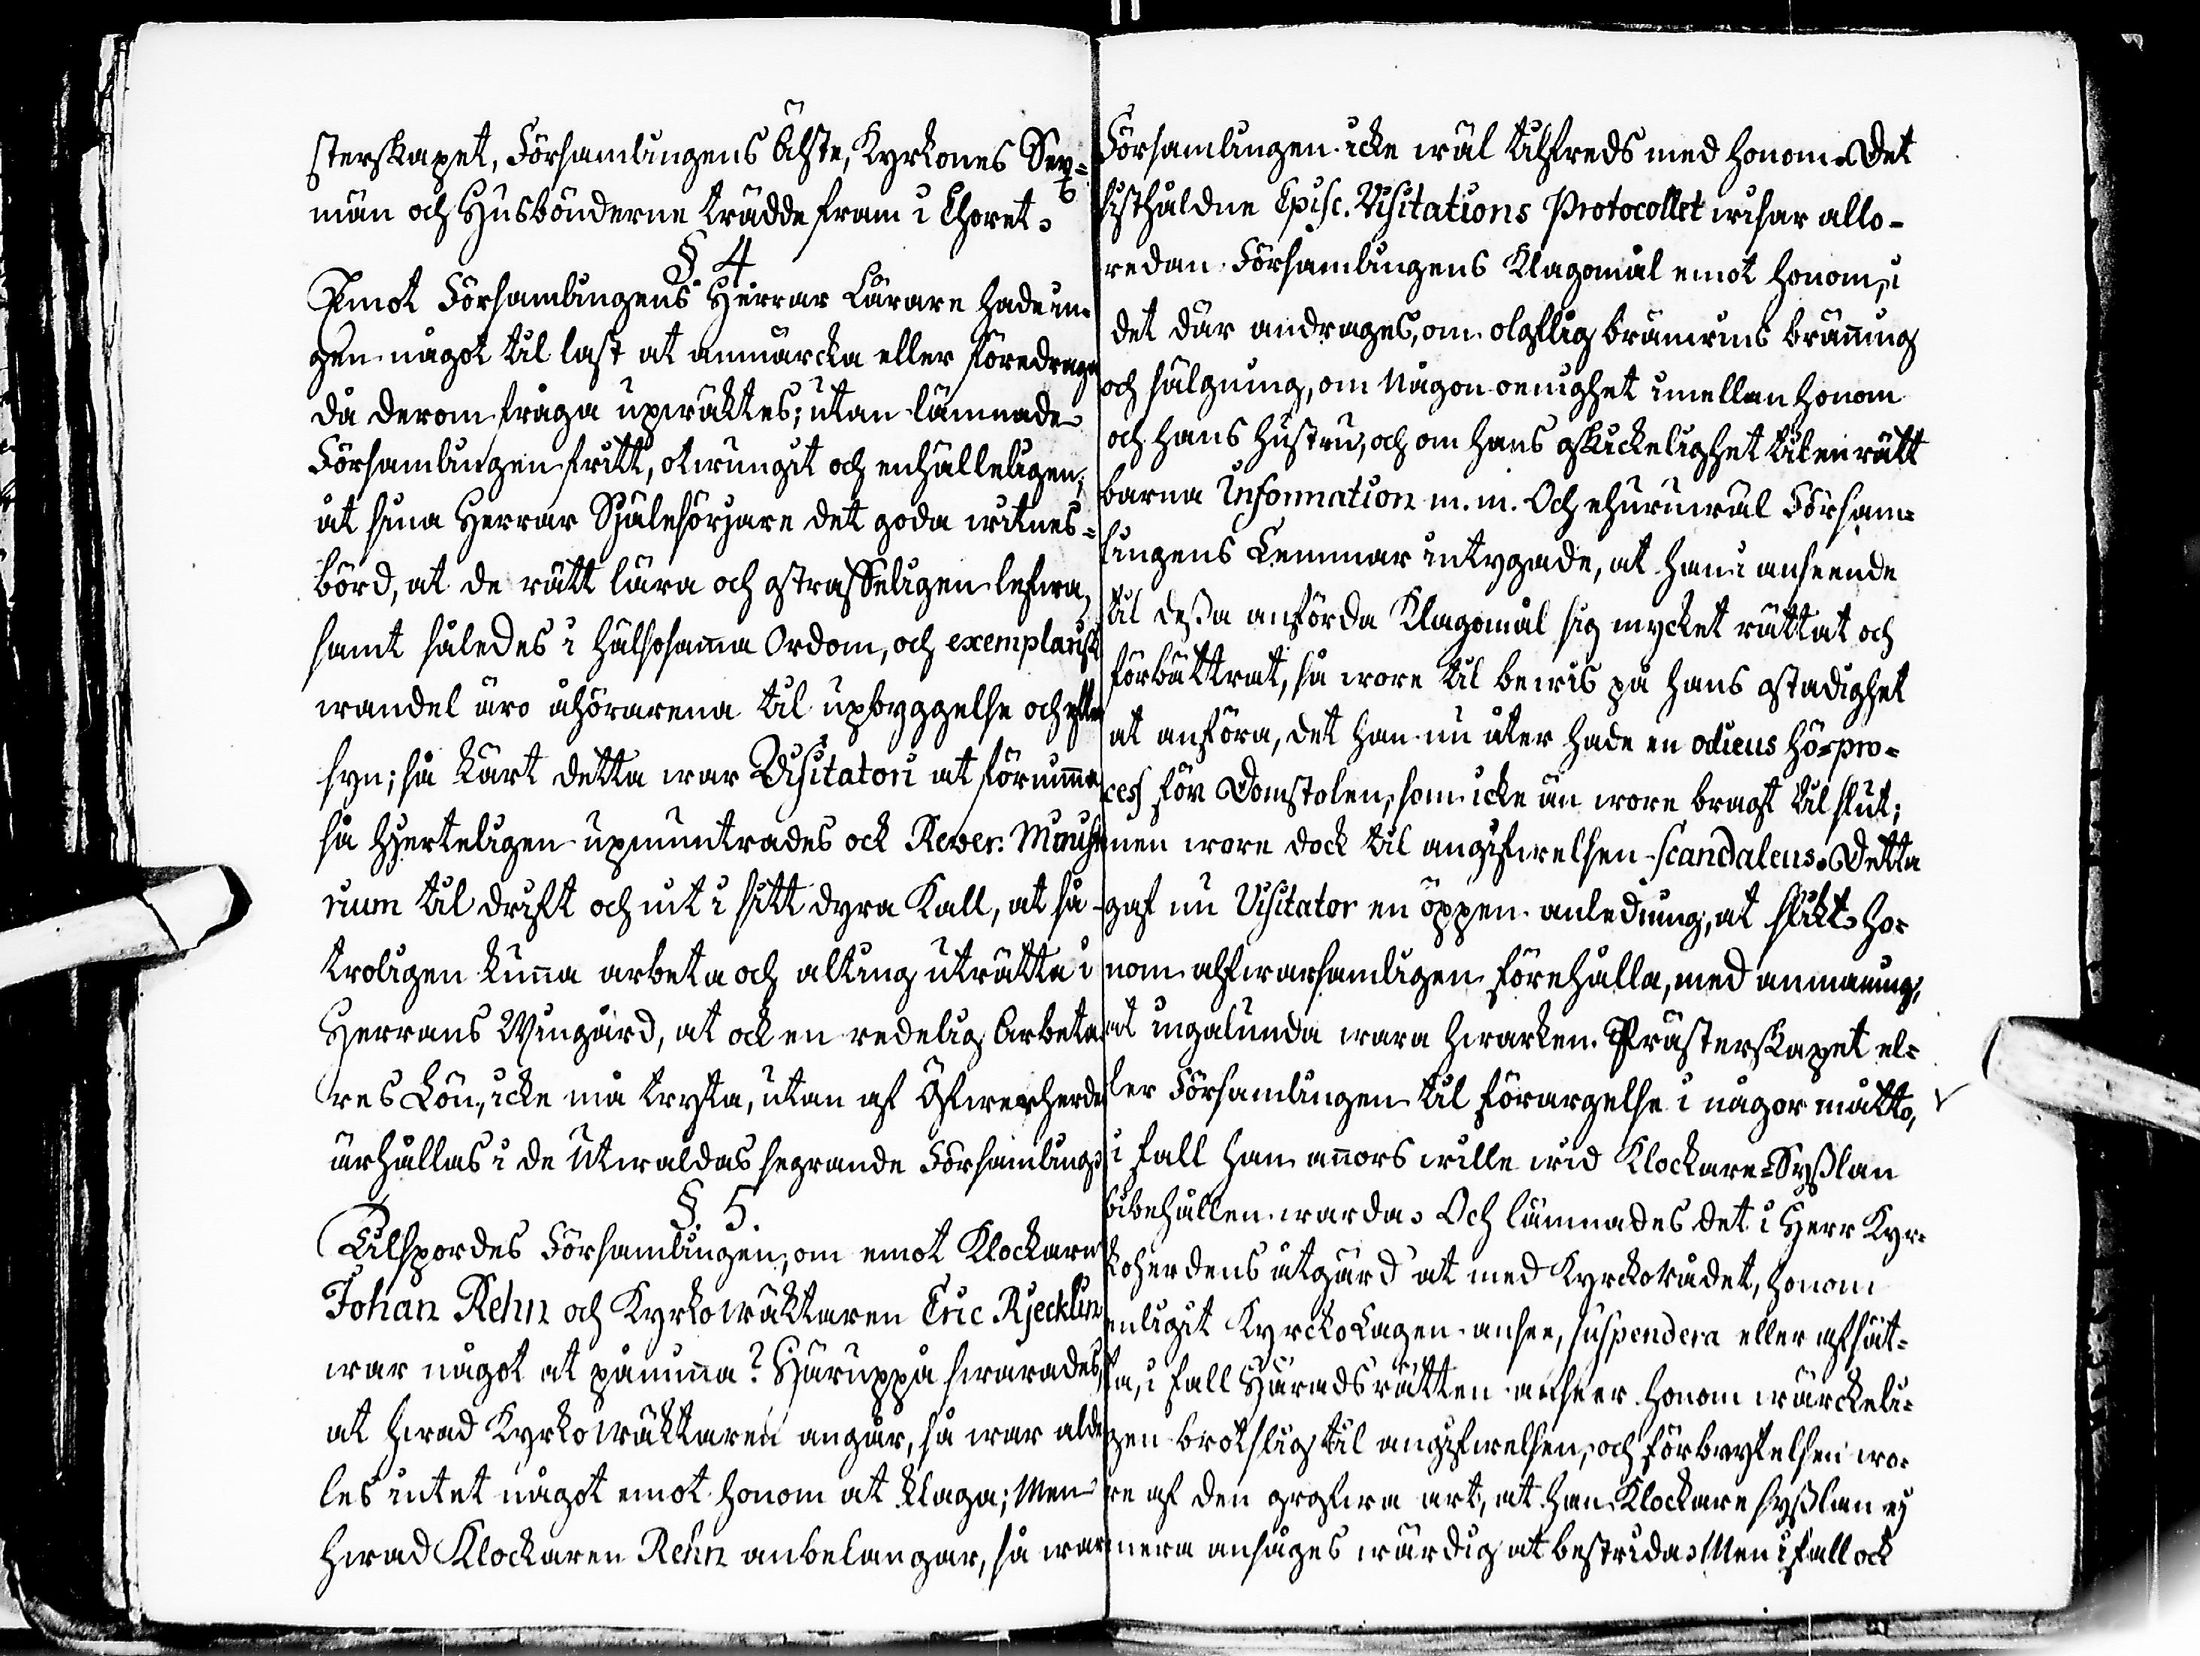 sterskapet, Församlingens Älste, Kyrkones Sex-
män och Husbönderne trädde fram i Choret.
§. 4
Emot Församlingens Herrar Lärare hade in-
gen något til last at anmärcka eller föredraga
då derom fråga upväktes; utan lämnade
Församlingen fritt, otwungit och enhälleligen,
åt sina Herrar Själesörjare det goda witnes-
börd, at de rätt lära och ostraffeligen lefwa,
samt således i hälsosamma Ordom, och exemplarisk
wandel äro åhörarena til upbyggelse och efter
syn; så kärt detta war Visitatori at förnimma
så hjerteligen upmuntrades ock Rever. Ministe
rium til drift och nit i sitt dyra Kall, at så
troligen kunna arbeta och alting uträtta i
Herrans Wingård, at ock en redelig Arbeta
res Lön, icke må tryta, utan af Öfwerherden
ärhållas i de Utwaldas segrande Församling.
§. 5.
Tilspordes Församlingen, om emot Klockaren
Johan Rehn och Kyrkowäktaren Eric Rjecklin
war något at påminna? Häruppå swarades,
at hwad Kyrkowäktaren angår, så war alde
les intet något emot honom at klaga; Men
hwad Klockaren Rehn anbelangar, så war
Församlingen icke wäl tilfreds med honom. Det
sisthåldne Episc. Visitations Protocollet wisar allo-
redan Församlingens Klagomål emot honom, i
det där andrages, om olaflig bränwins bränning
och sälgning, om någon oenighet imellan honom
och hans hustru, och om hans oskickelighet til en rätt
barna Information m. m. Och ehuruwäl Försam-
lingens Lemmar intygade, at han i anseende
til dessa anförda Klagomål sig mycket rättat och
förbättrat, så wore til bewis på hans ostadighet
at anföra, det han nu åter hade en odieus hö-pro-
cess för Domstolen, som icke än wore bragt til slut;
men wore dock til angifwelsen scandaleus. Detta
gaf nu Visitator en öppen anledning, at slikt ho-
nom alfwarsamligen förehålla, med anmaning,
at ingalunda wara hwarken Prästerskapet el-
ler Församlingen til förargelse i någor måtto,
i fall han annors wille wid Klockare-Sysslan
bibehållen warda. Och lämnades det i Herr Kyr-
koherdens åtgärd at med Kyrckorådet, honom
enligit KyrckoLagen anse, suspendera eller afsät-
ta, i fall Häradsrätten anser honom wärckeli-
gen brotslig til angifwelsen, och förbrytelsen wo-
re af den grofwa art, at han Klockare sysslan ej
mera ansåges wärdig at bestrida. Men i fall ock